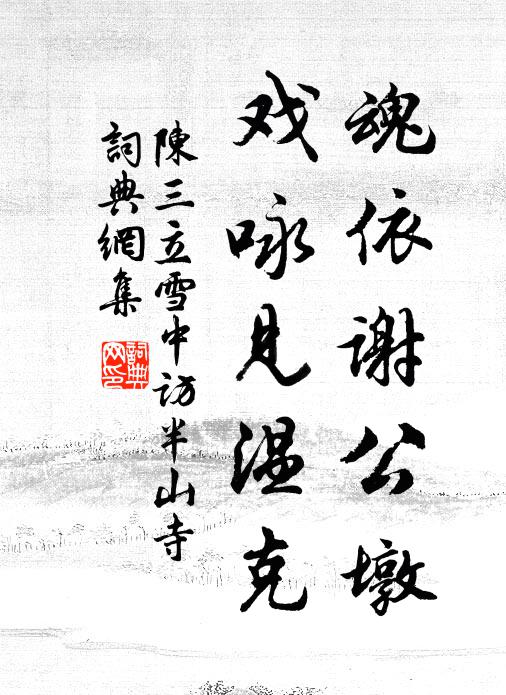 魂依谢公墩
戏咏見温克
陳三立雪中访半山寺
詞典網集
詞典
网印